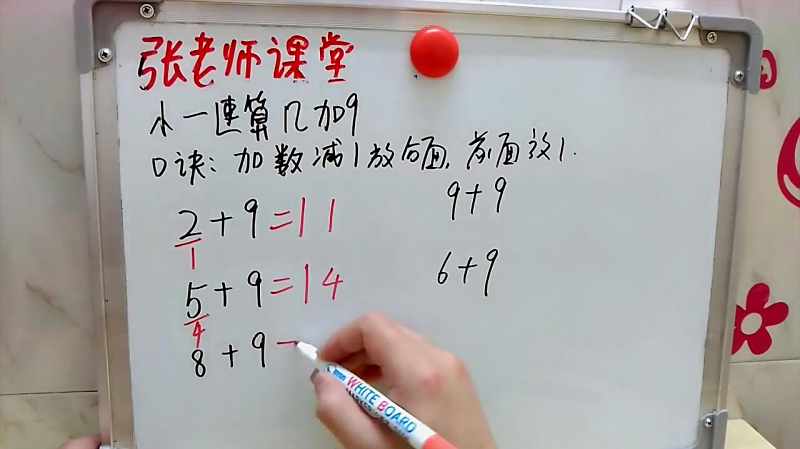 张老师课堂
小一速算几加9
口诀：加数减1放后面，前面放1.
2+9=11
1
9+9
5+9=14
4
6+9
8+9
WHITE BOARD